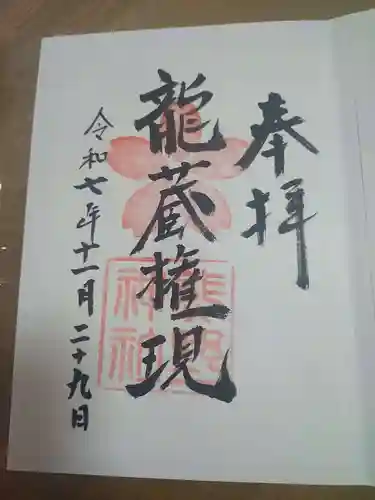 奉拝
龍蔵権現
令和七年十一月二十九日
熊野神社